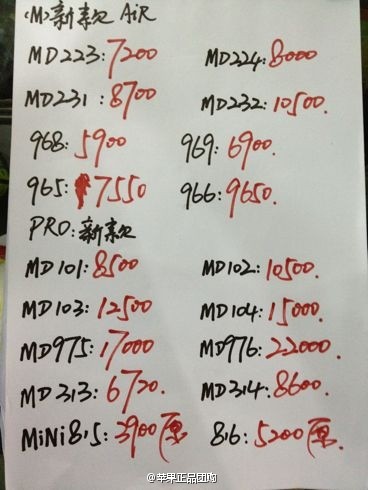 (M)新款 AiR
MD223:7200 MD224:8000
MD231:8700 MD232:10500.
968:5900 969:6900.
965:7550 966:9650.
PRO:新款
MD101:8500 MD102:10500.
MD103:12500 MD104:15000.
MD975:17000 MD976:22000.
MD313:6720. MD314:8600.
MiNi815:3900原 816:5200原.
@苹果正品团购